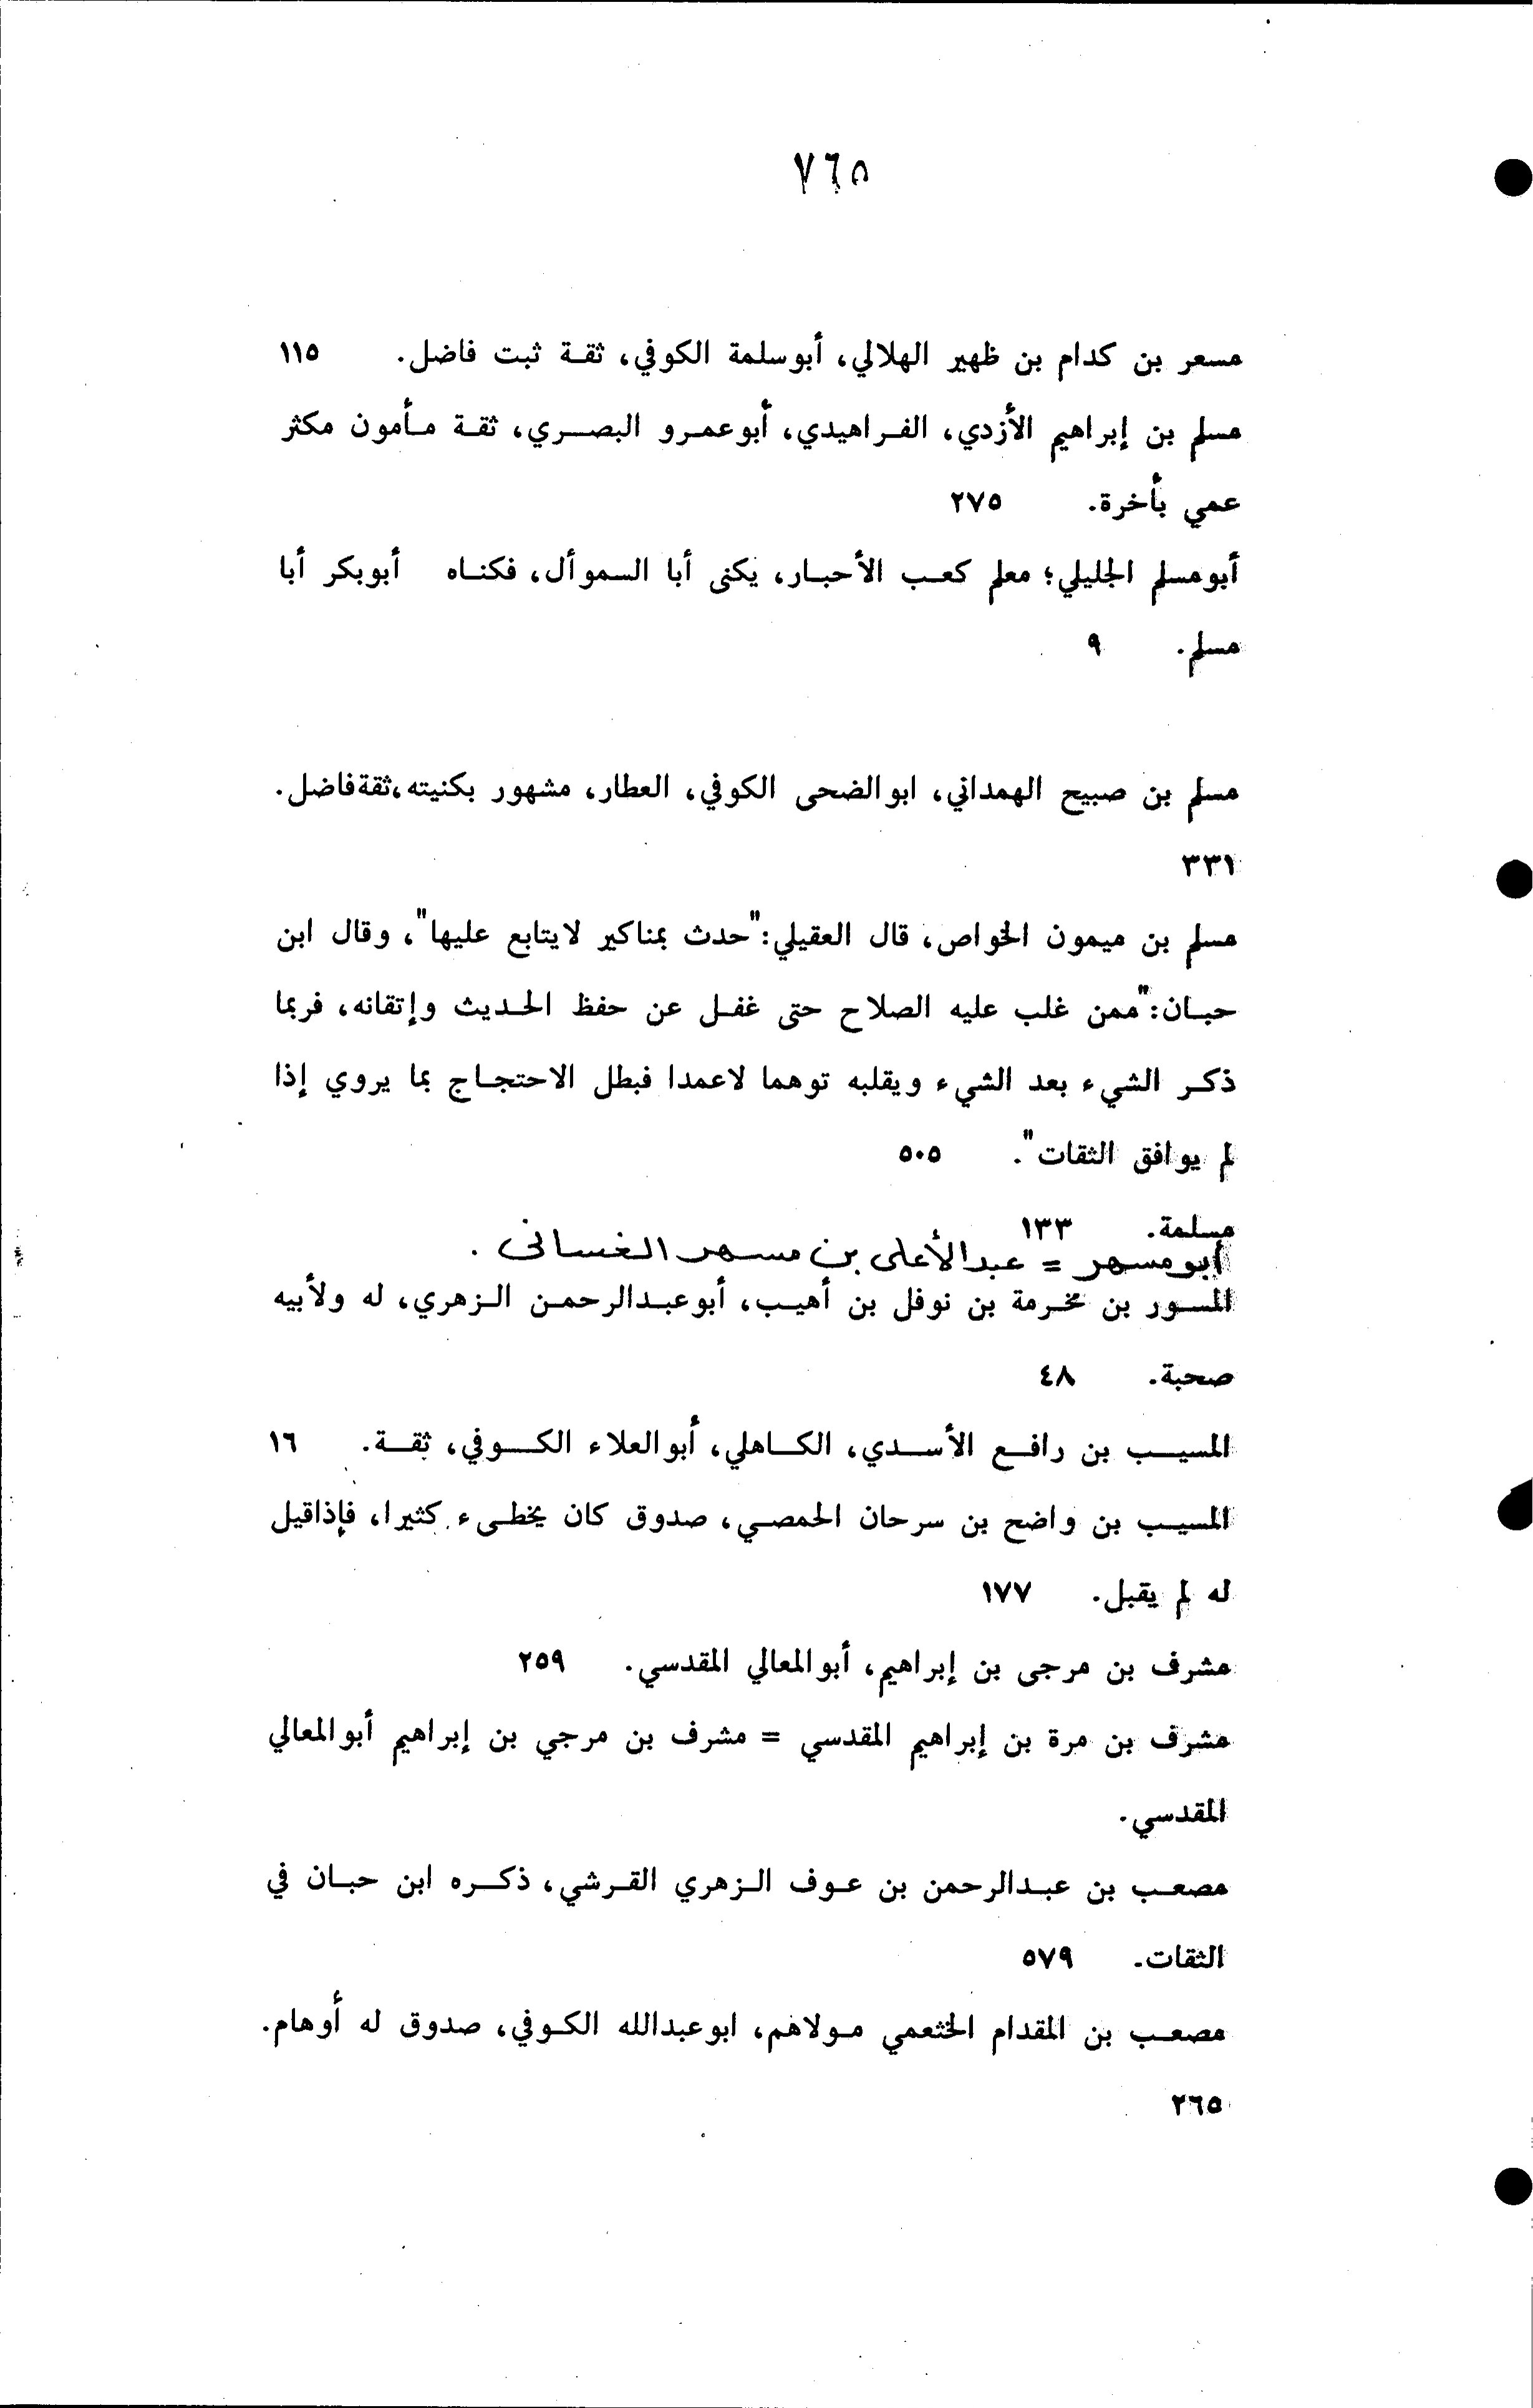 ٧٦٥
مسعر بن كدام بن ظهير الهلالي، أبوسلمة الكوفي، ثقة ثبت فاضل. ١١٥
مسلم بن إبراهيم الأزدي، الفراهيدي، أبوعمرو البصري، ثقة مأمون مكثر
عمي بأخرة. ٢٧٥
أبومسلم الجليلي؛ معلم كعب الأحبار، يكنى أبا السموأل، فكناه أبوبكر أبا
مسلم. ٩
مسلم بن صبيح الهمداني، ابوالضحى الكوفي، العطار، مشهور بكنيته،ثقةفاضل.
٣٣١
مسلم بن ميمون الخواص، قال العقيلي:"حدث بمناكير لايتابع عليها"، وقال ابن
حبان:"ممن غلب عليه الصلاح حتى غفل عن حفظ الحديث وإتقانه، فربما
ذكر الشيء بعد الشيء ويقلبه توهما لاعمدا فبطل الاحتجاج بما يروي إذا
لم يوافق الثقات". ٥٠٥
مسلمة. ١٣٣
أبومسهر = عبدالأعلى بن مسهر الغسانى .
المسور بن مخرمة بن نوفل بن أهيب، أبوعبدالرحمن الزهري، له ولأبيه
صحبة. ٤٨
المسيب بن رافع الأسدي، الكاهلي، أبوالعلاء الكوفي، ثقة. ١٦
المسيب بن واضح بن سرحان الحمصي، صدوق كان يخطىء كثيرا، فإذاقيل
له لم يقبل. ١٧٧
مشرف بن مرجى بن إبراهيم، أبوالمعالي المقدسي. ٢٥٩
مشرف بن مرة بن إبراهيم المقدسي = مشرف بن مرجي بن إبراهيم أبوالمعالي
المقدسي.
مصعب بن عبدالرحمن بن عوف الزهري القرشي، ذكره ابن حبان في
الثقات. ٥٧٩
مصعب بن المقدام الخثعمي مولاهم، ابوعبدالله الكوفي، صدوق له أوهام.
٢٦٥